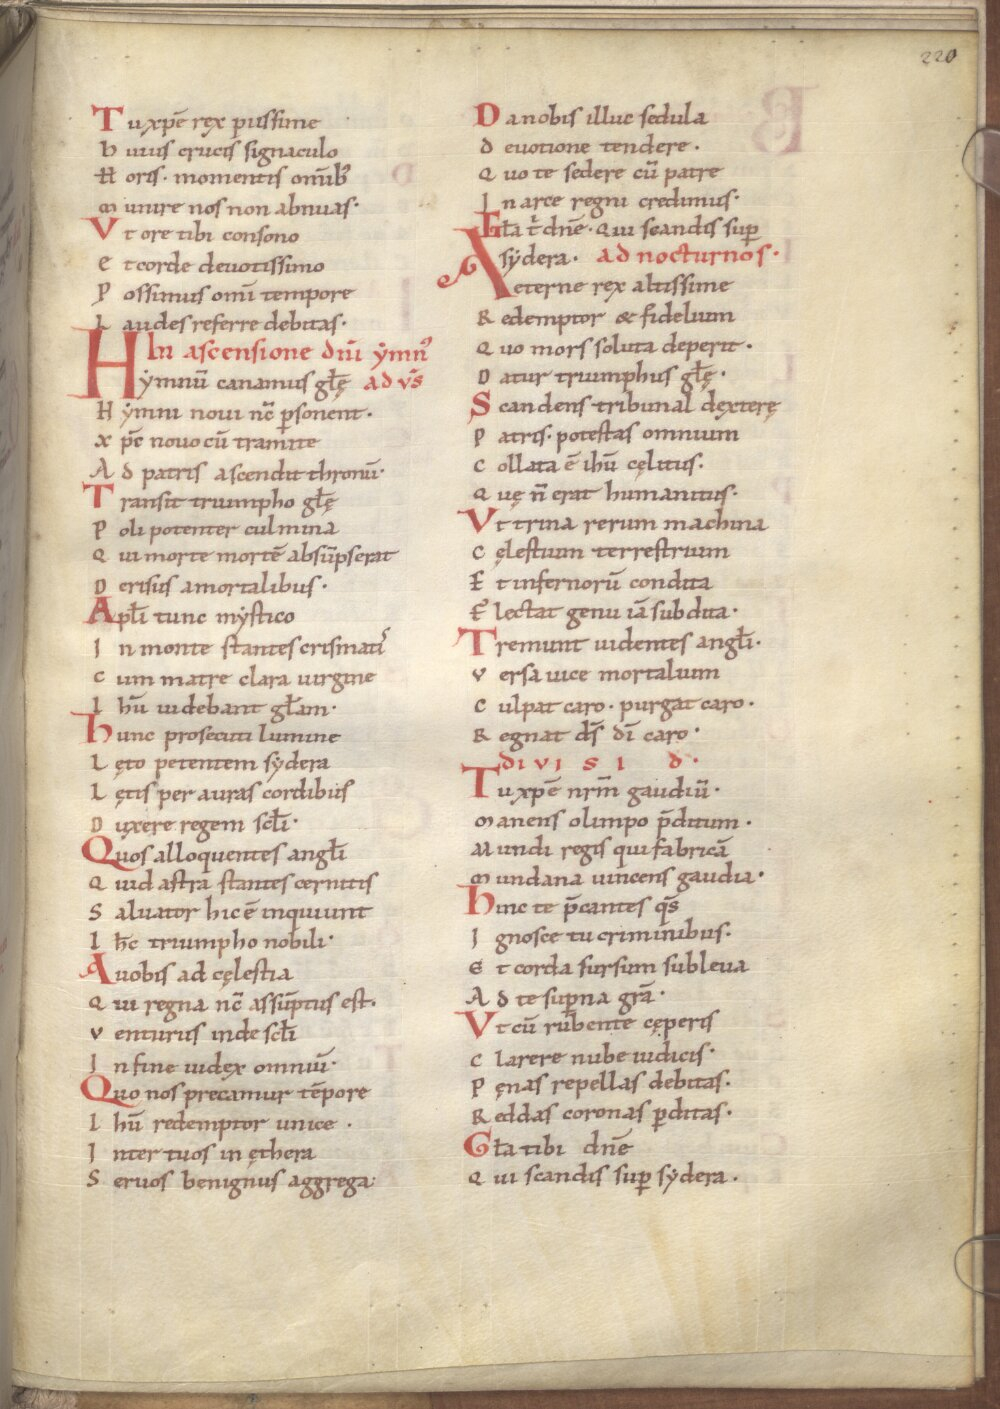 220
Tu xp̄e rex piissime
huius crucis signaculo
Horis· momentis om̄ib;
munire nos non abnuas·
Vt ore tibi consono
et corde deuotissimo
Possimus om̄i tempore
Laudes referre debitas·
In ascensione dn̄i ẏmn᾽
Hẏmnū canamus gl̄ę ad v̄s
Hẏmni noui nc̄ p̱sonent·
xp̄c nouo cū tramite
Ad patris ascendit thronū·
Transit triumpho gl̄ę
Poli potenter culmina
Qui morte mortē absūpserat
Derisus a mortalibus·
Apl̄i tunc mẏstico
In monte stantes crismatis
Cum matre clara uirgine
Ihū uidebant gl̄am·
hunc prosecuti lumine
Lęto petentem sẏdera
Lętis per auras cordibus
Duxere regem scl̄i·
Quos alloquentes angl̄i
Quid astra stantes cernitis
Saluator hic ē inquiunt
Ih̄c triumpho nobili·
A uobis ad cęlestia
Qui regna nc̄ assūptus est·
Venturus inde scl̄i
In fine iudex omniū·
Quo nos precamur tēpore
Ihū redemptor unice ·
Inter tuos in ęthera
Seruos benignus aggrega·
Da nobis illuc sedula
deuotione tendere·
Quo te sedere cū patre
In arce regni credimus·
Gl̄a t̄ dn̄e· Qui scandis sup̱
sẏdera· ad nocturnos·
Aeterne rex altissime
Redemptor & fidelium
Quo mors soluta deperit·
Datur triumphus gl̄ę·
Scandens tribunal dexterę
Patris· potestas omnium
Collata ē ihū cęlitus·
Quę n̄ erat humanitus·
Vt trina rerum machina
Cęlestium terrestrium
Et infernorū condita
Flectat genu iā subdita·
Tremunt uidentes angl̄i·
Versa uice mortalium
Culpat caro· purgat caro·
Regnat ds̄ dī caro·
di v i s i d·
Tu xp̄e nrm̄ gaudiū·
manens olimpo p̄ditum·
Mundi regis qui fabricā
mundana uincens gaudia·
hinc te p̄cantes qs̄
Ignosce tu criminibus·
Et corda sursum subleua
Ad te sup̱na grā·
Vt cū rubente cęperis
Clarere nube iudicis·
Pęnas repellas debitas·
Reddas coronas p̱ditas·
Gl̄a tibi dn̄e
Qui scandis sup̱ sẏdera·